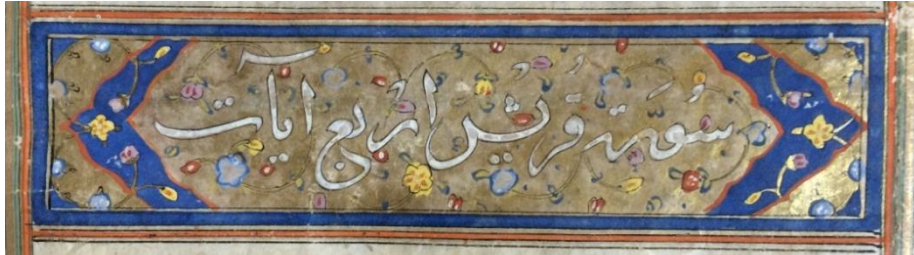 سورة قريش اربع آيات